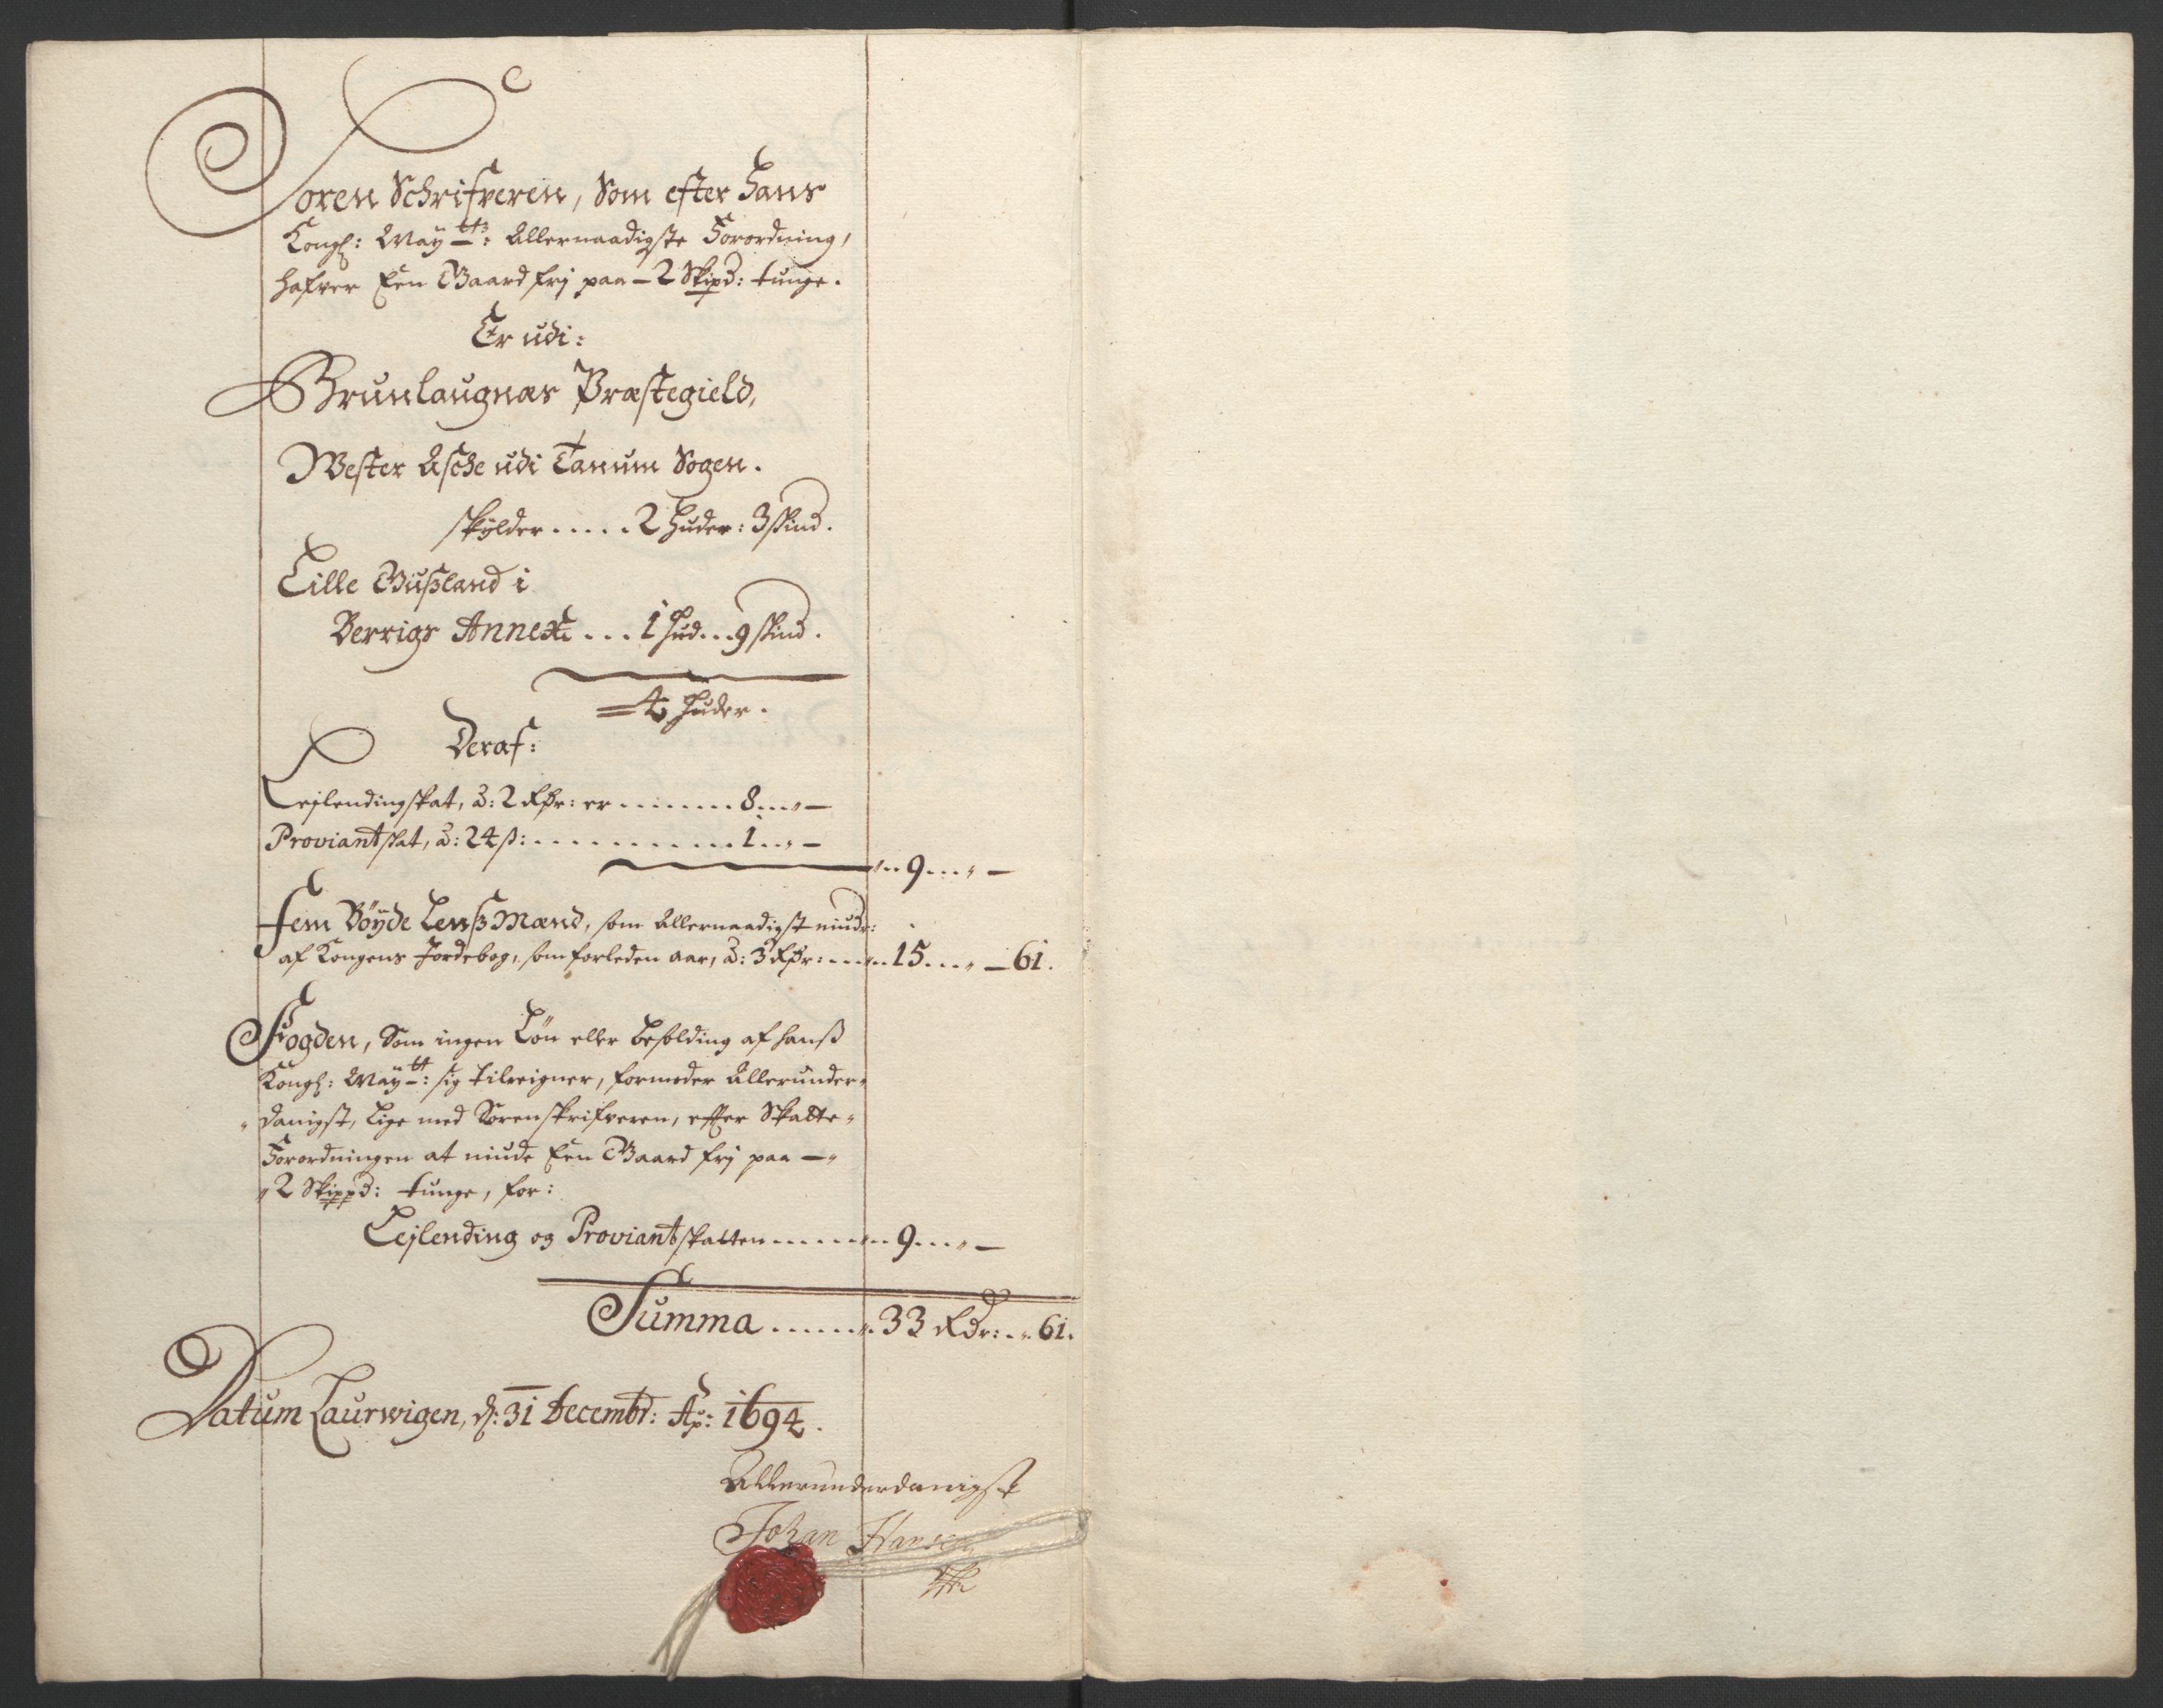 Soren Schrifveren, Som efter Hans
Kongl: May.ttz: Allernaadigste Forordning,
hafver Een Gaard frj paa - 2 Skipd: tunge.
Er udi:
Brunlaugnæs Præstegield,
Wester Asche udi Tanum Sogen.
skylder ..... 2 huder: 3 skind.
Lille Gusland i
Berrigs Annex ... 1 hud ... 9 skind.
= 4 huder.
Deraf:
Lejlendingskat, á: 2 Rdr: er ....... 8 ... „ -
Proviantskat, á: 24 s: .......... 1 .. „ -
„ .. 9 ... „ -
Fem Böyde Lenssmænd, som Allernaadigst niude:
af Kongens Jordebog, som forleden aar, á: 3 Rdr: ... „ .. 15 ... „ - 61.
Fogden, Som ingen Lön eller besolding af hanss
Kongl: May.tt: sig tileigner, formoder Allerunder-
danigst, Lige med Sorenskrifveren, efter Skatte-
Forordningen at niude Een Gaard frj paa -
2 Skippd: tunge, for:
Lejlending og Proviantskatten ..... „ .. 9 ... „ -
Summa ...... „. 33 Rdr: .. „. 61.
Datum Laurwigen, d: 31 Decembr: Ao: 1694.
Allerunderdanigst
Johan Hansen